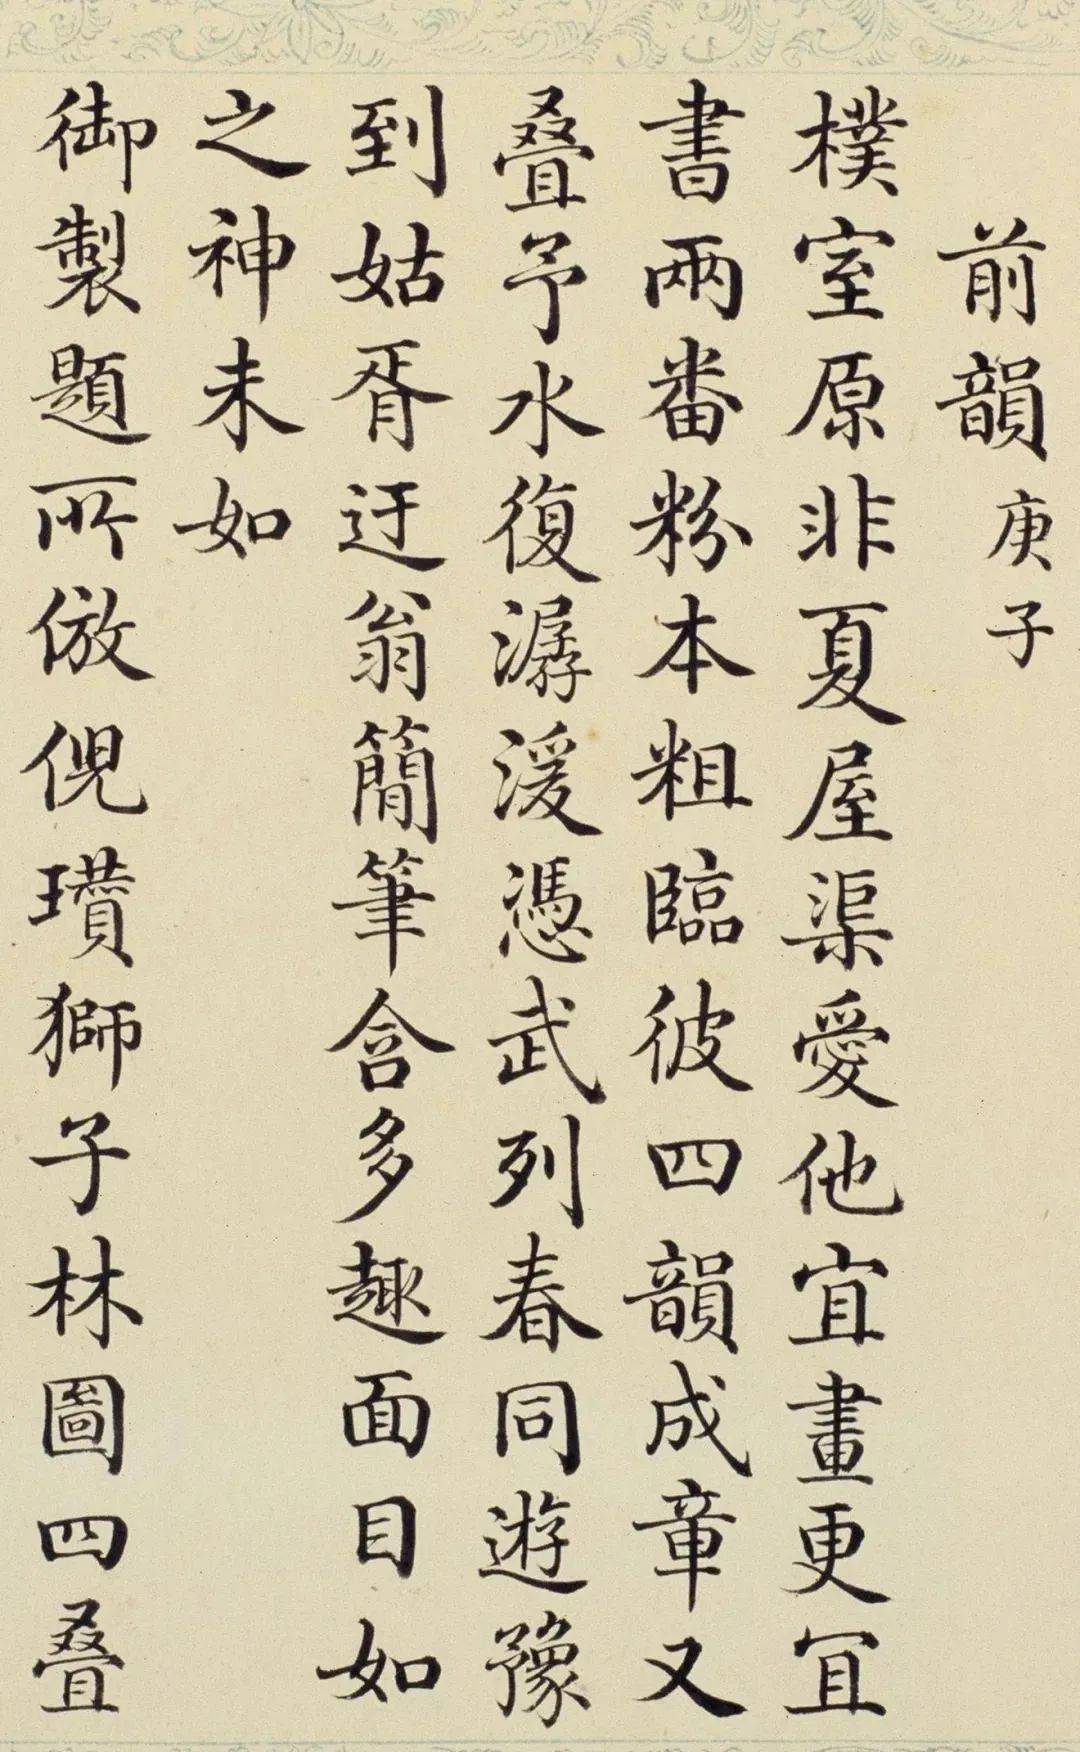 前韻庚子
樸室原非夏屋渠愛他宜畫更宜
書兩番粉本粗臨彼四韻成章又
疊予水復潺湲憑武列春同遊豫
到姑胥迂翁簡筆含多趣面目如
之神未如
御製題所倣倪瓚獅子林圖四疊